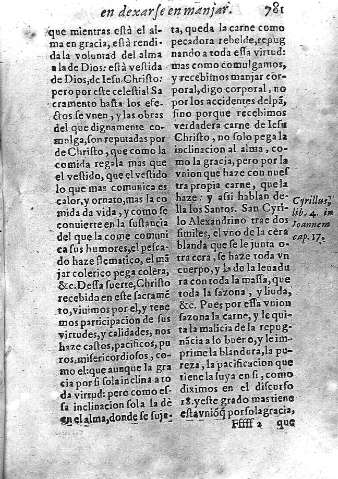 en dexarse en manjar. 781
que mientras està el al-
ma en gracia, està rendi-
da la voluntad del alma
a la de Dios: està vestida
de Dios, de Iesu Christo:
pero por este celestial Sa
cramento hasta los efe-
ctos se vnen, y las obras
del que dignamente co-
mulga, son reputadas por
de Christo, que como la
comida regala mas que
el vestido, que el vestido
lo que mas comunica es
calor, y ornato, mas la co
mida da vida, y como se
conuierte en la sustancia
del que la come comuni
ca sus humores, el pesca-
do haze flematico, el mã
jar colerico pega colera,
&c. Dessa suerte, Christo
recebida en este sacramẽ
to, viuimos por el, y tene
mos participacion de sus
virtudes, y calidades, nos
haze castos, pacificos, pu
ros, misericordiosos, co-
mo el: que aunque la gra
cia por si sola inclina a to
da virtud: pero como es-
sa inclinacion sola la dè
en el alma, donde se suje-
ta, queda la carne como
pecadora rebelde, repug
nando a toda essa virtud:
mas como comulgamos,
y recebimos manjar cor-
poral, digo corporal, no
por los accidentes del pã,
sino porque recebimos
verdadera carne de Iesu
Christo, no solo pega la
inclinacion al alma, co-
mo la gracia, pero por la
vnion que haze con nues
tra propia carne, que la
haze: y assi hablan de
llo los Santos. San Cyri-
lo Alexandrino trae dos
similes, el vno de la cera
blanda que se le junta o-
tra cera, se haze toda vn
cuerpo, y la de la leuadu
ra con toda la massa, que
toda la sazona, y liuda,
&c. Pues por essa vnion
sazona la carne, y le qui-
ta la malicia de la repug-
nãcia a lo bueno, y le im-
prime la blandura, la pu-
reza, la pacificacion que
tiene la suya en si, como
diximos en el discurso
18. y este grado mas tiene
esta vniõ q̃ por sola gracia,
Cyrillus,
lib. 4. in
Ioannem
cap. 17.
Fffff 2 que